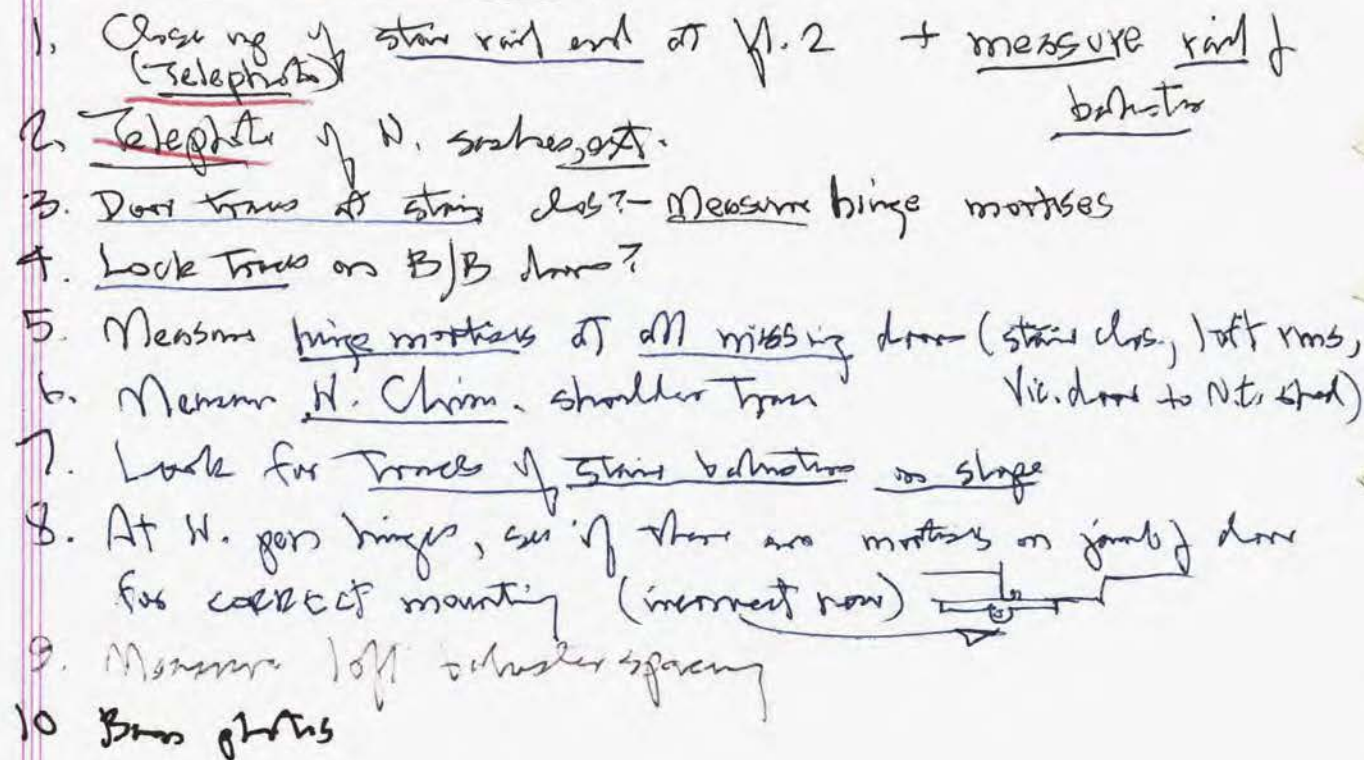 1. Close up of stair rail end at fl. 2 + measure rail &
(Telephoto) baluster
2. Telephoto of N. sashes, ext.
3. Door traces at stair clos? - Measure hinge mortises
4. Lock traces on B/B doors?
5. Measure hinge mortises at all missing doors (stair clos., loft rms,
6. Measure N. Chim. shoulder traces Vic. door to N.E. shed)
7. Look for traces of stair balusters on slope
8. At W. hinges, see if there are mortises on jamb & door
for CORRECT mounting (incorrect now)
9. Measure loft baluster spacing
10 Barn photos